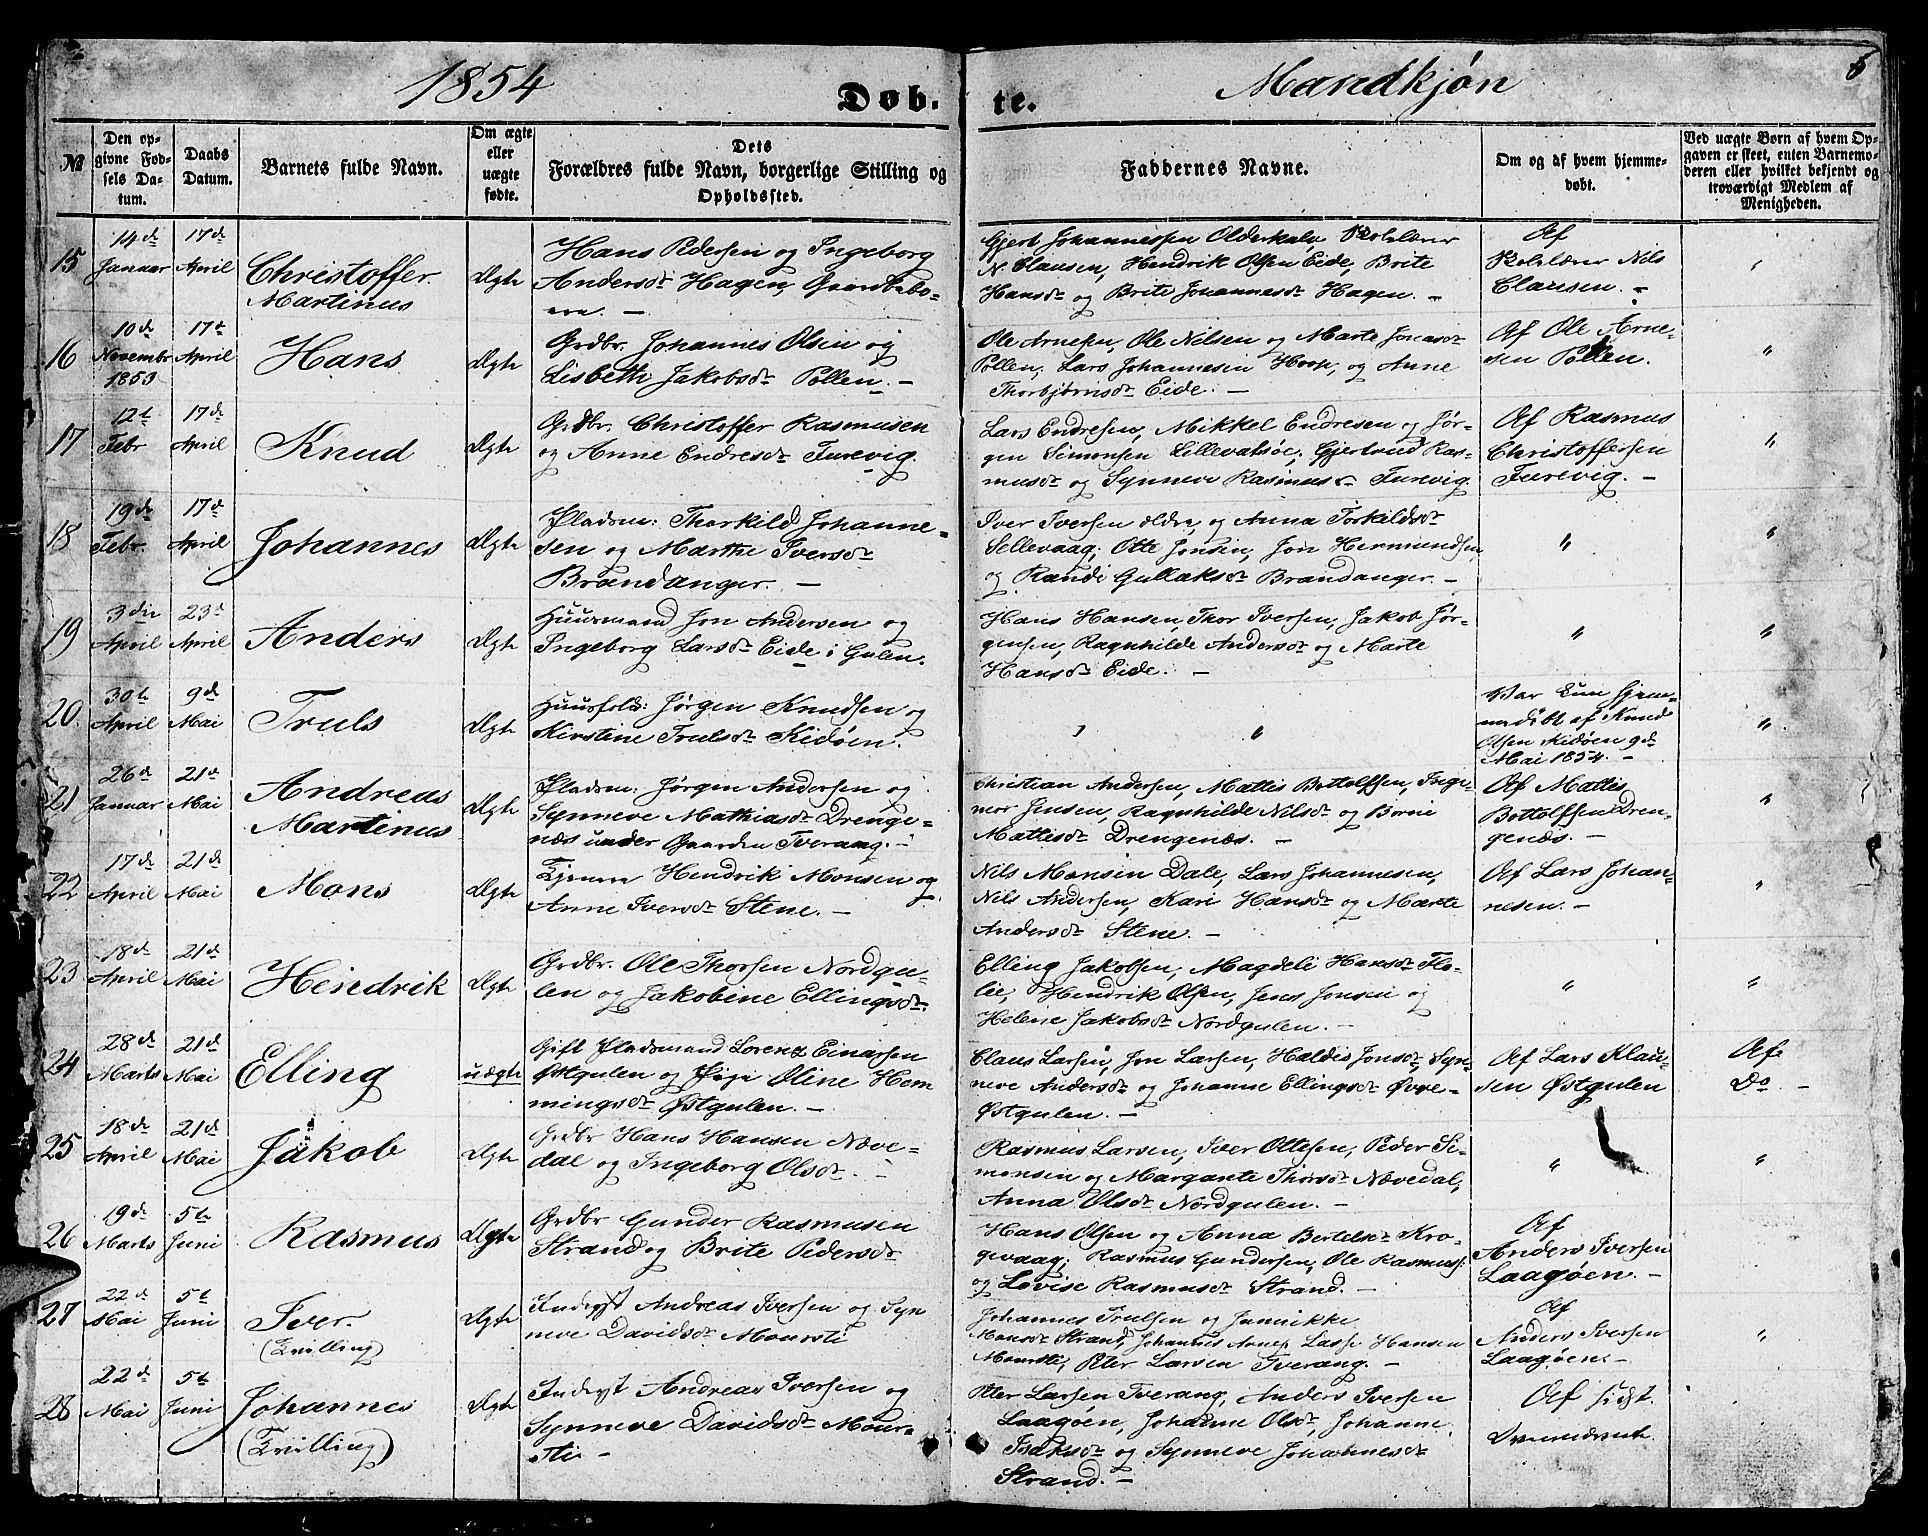 1854
Døb-
te.
Mandkjøn
5
№
Den opgivne Fødsels Datum.
Daabs Datum.
Barnets fulde Navn.
Om ægte eller uægte fødte.
Dets Forældres fulde Navn, borgerlige Stilling og Opholdssted.
Faddernes Navne.
Om og af hvem hjemmedøbt.
Ved uægte Børn af hvem Opgaven er skeet, enten Barnemoderen eller hvilket bekjendt og troværdigt Medlem af Menigheden.
15
14de Januar
17de April
Christoffer Martinus
Ægte
Hans Pedersen og Ingeborg
Andersdr Hagen, Gaardbebo-
ere. —
Gjert Johannessen Olderkalv, Skolelærer
N. Clausen, Hendrik Olsen Eide, Brite
Hansdr og Brite Johannesdr Hagen. —
Af
Skolelærer Nils
Clausen. —
"
16
10de Novembr 1853
17de April
Hans
Ægte
Grdbr. Johannes Olsen og
Lisbeth Jakobsdr Pollen. —
Ole Arnesen, Ole Nilsen og Marte Jonasdr
Pollen, Lars Johannesen og Anne
Thorbjørnsdr Eide. —
Af Ole Arne-
sen Pollen.
"
17
12t Febr
17de April
Knud
Ægte
Grdbr. Christoffer Rasmusen
og Anne Endresdr Furevig.
Lars Endresen, Mikkel Endresen og Jør-
gen Simonsen Lillevatsøe, Gjertrud Ras-
musdr og Synneve Rasmusdr Furevig.
Af Rasmus
Christoffersen
Furevig. —
"
18
19de Febr.
17de April
Johannes
Ægte
Pladsm: Thorkild Johanne-
sen og Marthe Iversdr
Brandanger. —
Iver Iversen ældre, og Anna Torkildsdr
Sellevaag, Otte Jonsen, Jon Hermundsen,
og Randi Gullaksdr Brandanger. —
"
"
19
3die April
23d April
Anders
Ægte
Huusmand Jon Andersen og
Ingeborg Larsdr Eide i Gulen.
Hans Hansen, Thor Iversen, Jakob Jør-
gensen, Ragnhilde Andersdr og Marte
Hansdr Eide. —
"
"
20.
30te April
9de Mai
Truls
Ægte
Huusfolk: Jørgen Knudsen og
Kirstine Trulsdr Kidøen.
"
"
Var kun hjem-
medøbt af Knud
Olsen Kidøen 9de
Mai 1854. —
"
21
26de Januar
21de Mai
Andreas Martinus
Ægte
Pladsm: Jørgen Andersen og
Synneve Mathiasdr Drenge-
næs under Gaarden Tveraag. —
Christian Andersen, Mattis Bottolfsen, Inge-
mor Jensen, Ragnhilde Nilsdr og
Mattisdr Drengenæs. —
Af Mattis
Bottolfsen Dren-
genæs. —
"
22
17de April
21de Mai
Mons
Ægte
Tjenere Hendrik Monsen og
Anne Iversdr Stene. —
Nils Monsen Dale, Lars Johannesen,
Nils Andersen, Kari Hansdr og Marte
Andersdr Stene. —
Af Lars Johan-
nesen. —
"
23
18de April
21de Mai
Hendrik
Ægte
Grdbr. Ole Thorsen Nordgu-
len og Jakobine Ellingsdr.
Elling Jakobsen, Magdeli Hansdr Flo-
lie, Hendrik Olsen, Jens Jonsen og
Helene Jakobsdr Nordgulen. —
"
"
24
28de Marts
21de Mai
Elling
uægte
Gift Pladsmand Lorenz Einarsen
Østgulen og Pige Oline Hem-
mingsdr Østgulen. —
Claus Larsen, Jon Larsen, Haldis Jonsdr, Syn-
neve Andersdr og Johanne Ellingsdr Øvre-
Østgulen. —
Af Lars Klau-
sen Østgulen
Af
Do —
25
18de April
21de Mai
Jakob
Ægte
Grdbr Hans Hansen Næve-
dal og Ingeborg Olsdr. —
Rasmus Larsen, Iver Ottesen, Peder Si-
monsen og Margrete Thorsdr Nævedal,
Anna Olsdr Nordgulen. —
"
"
26
19de Marts
5te Juni
Rasmus
Ægte
Grdbr Gunder Rasmusen
Strand og Brite Pedersdr
Hans Olsen og Anna Bertelsdr Kro-
gevaag, Rasmus Gundersen, Ole Rasmuss:
og Lovise Rasmusdr Strand. —
Af
Anders Iversen
Laagøen. —
27
22de Mai
5te Juni
Iver
(Tvilling)
Ægte
Inderst Andreas Iversen og Syn
neve Davidsdr Moursti
Johannes Trulsen og Jannikke
Monsdr Strand, Johannes Arnes Lasse Hansen
Moursti, Peter Larsen Tverang. —
Af
Anders Iversen
Laagøen. —
"
28
22de Mai
5te Juni
Johannes
(Tvilling)
Ægte
Inderst Andreas Iversen og
Synneve Davidsdr Mour-
sti —
Peter Larsen Tverang, Anders Iversen
Laagøen, Johanne Olsdr, Johanne
Isaksdr og Synneve Johannesdr
Strand. —
Af sidst